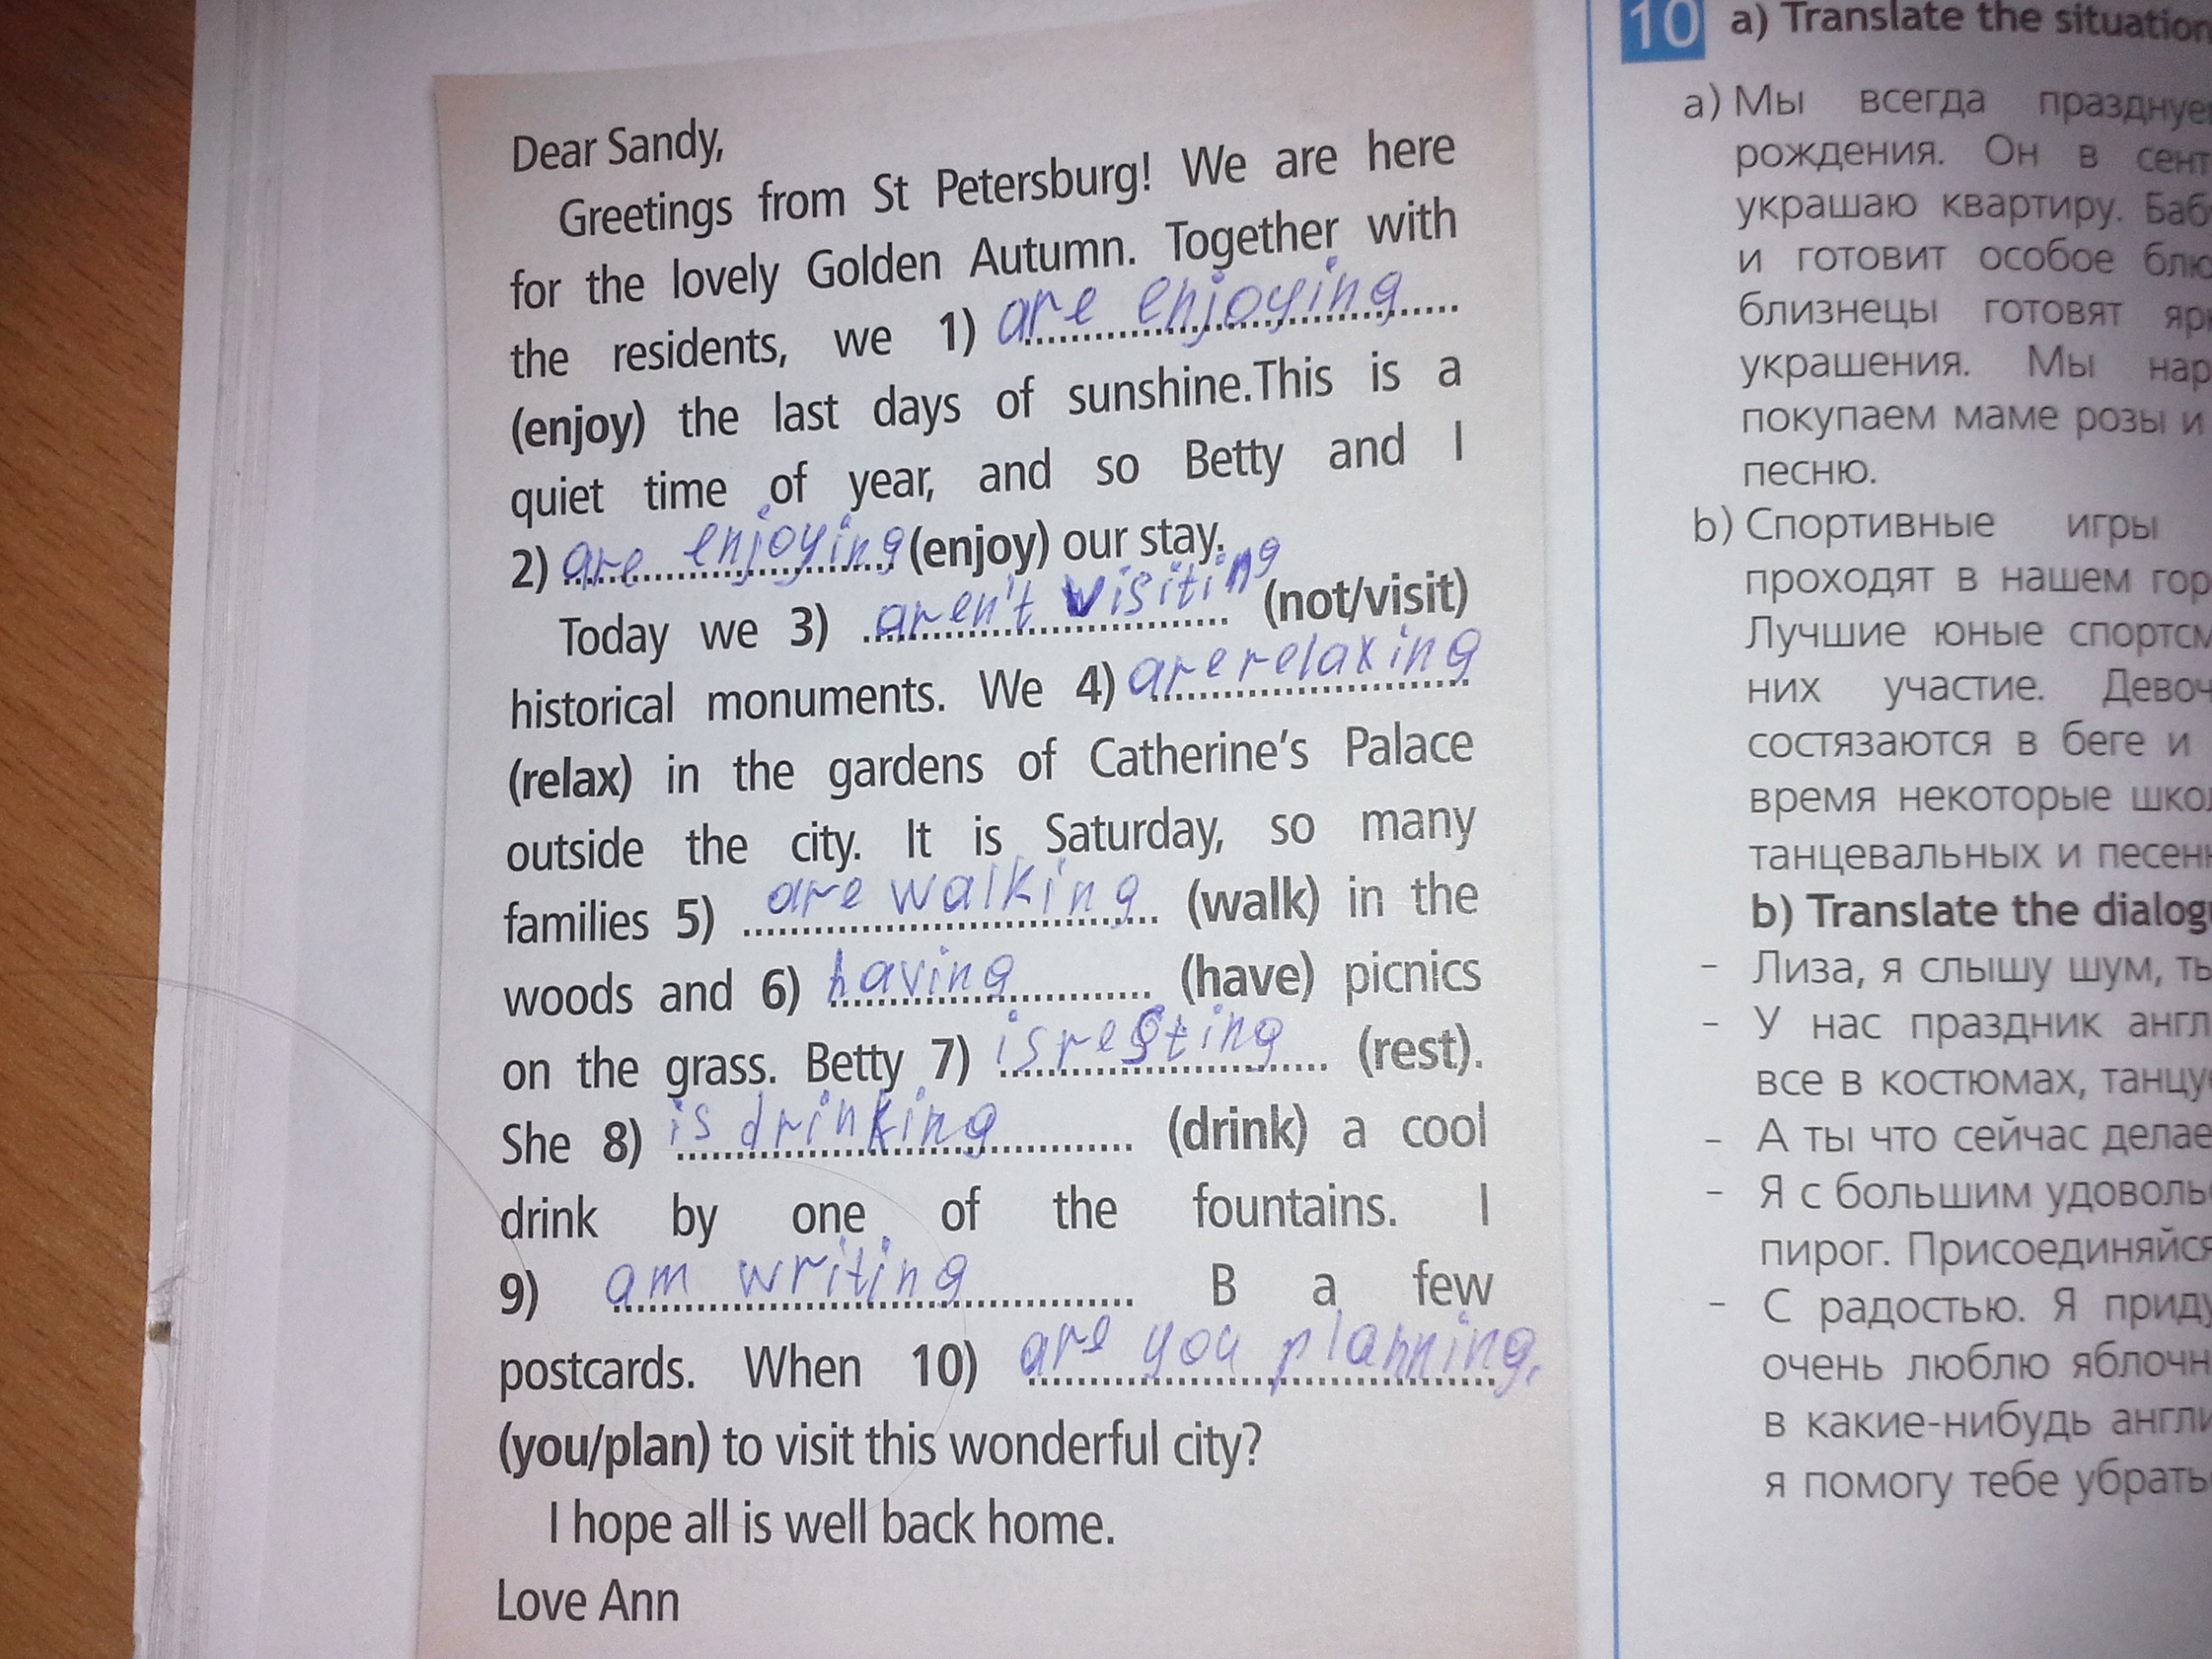 Dear Sandy,
Greetings from St Petersburg! We are here
for the lovely Golden Autumn. Together with
the residents, we 1) are enjoying
(enjoy) the last days of sunshine.This is a
quiet time of year, and so Betty and I
2) are enjoying (enjoy) our stay.
Today we 3) aren't visiting (not/visit)
historical monuments. We 4) are relaxing
(relax) in the gardens of Catherine's Palace
outside the city. It is Saturday, so many
families 5) are walking (walk) in the
woods and 6) having (have) picnics
on the grass. Betty 7) is resting (rest).
She 8) is drinking (drink) a cool
drink by one of the fountains. I
9) am writing B a few
postcards. When 10) are you planning,
(you/plan) to visit this wonderful city?
I hope all is well back home.
Love Ann
10 a) Translate the situation
a) Мы всегда празднуе
рождения. Он в сент
украшаю квартиру. Баб
и готовит особое блю
близнецы готовят яр
украшения. Мы нар
покупаем маме розы и
песню.
b) Спортивные игры
проходят в нашем гор
Лучшие юные спортсм
них участие. Девоч
состязаются в беге и
время некоторые шко
танцевальных и песен
b) Translate the dialog
– Лиза, я слышу шум, ты
– У нас праздник англ
все в костюмах, танцу
– А ты что сейчас делае
– Я с большим удоволь
пирог. Присоединяйся
– С радостью. Я приду
очень люблю яблочн
в какие-нибудь англи
я помогу тебе убрать